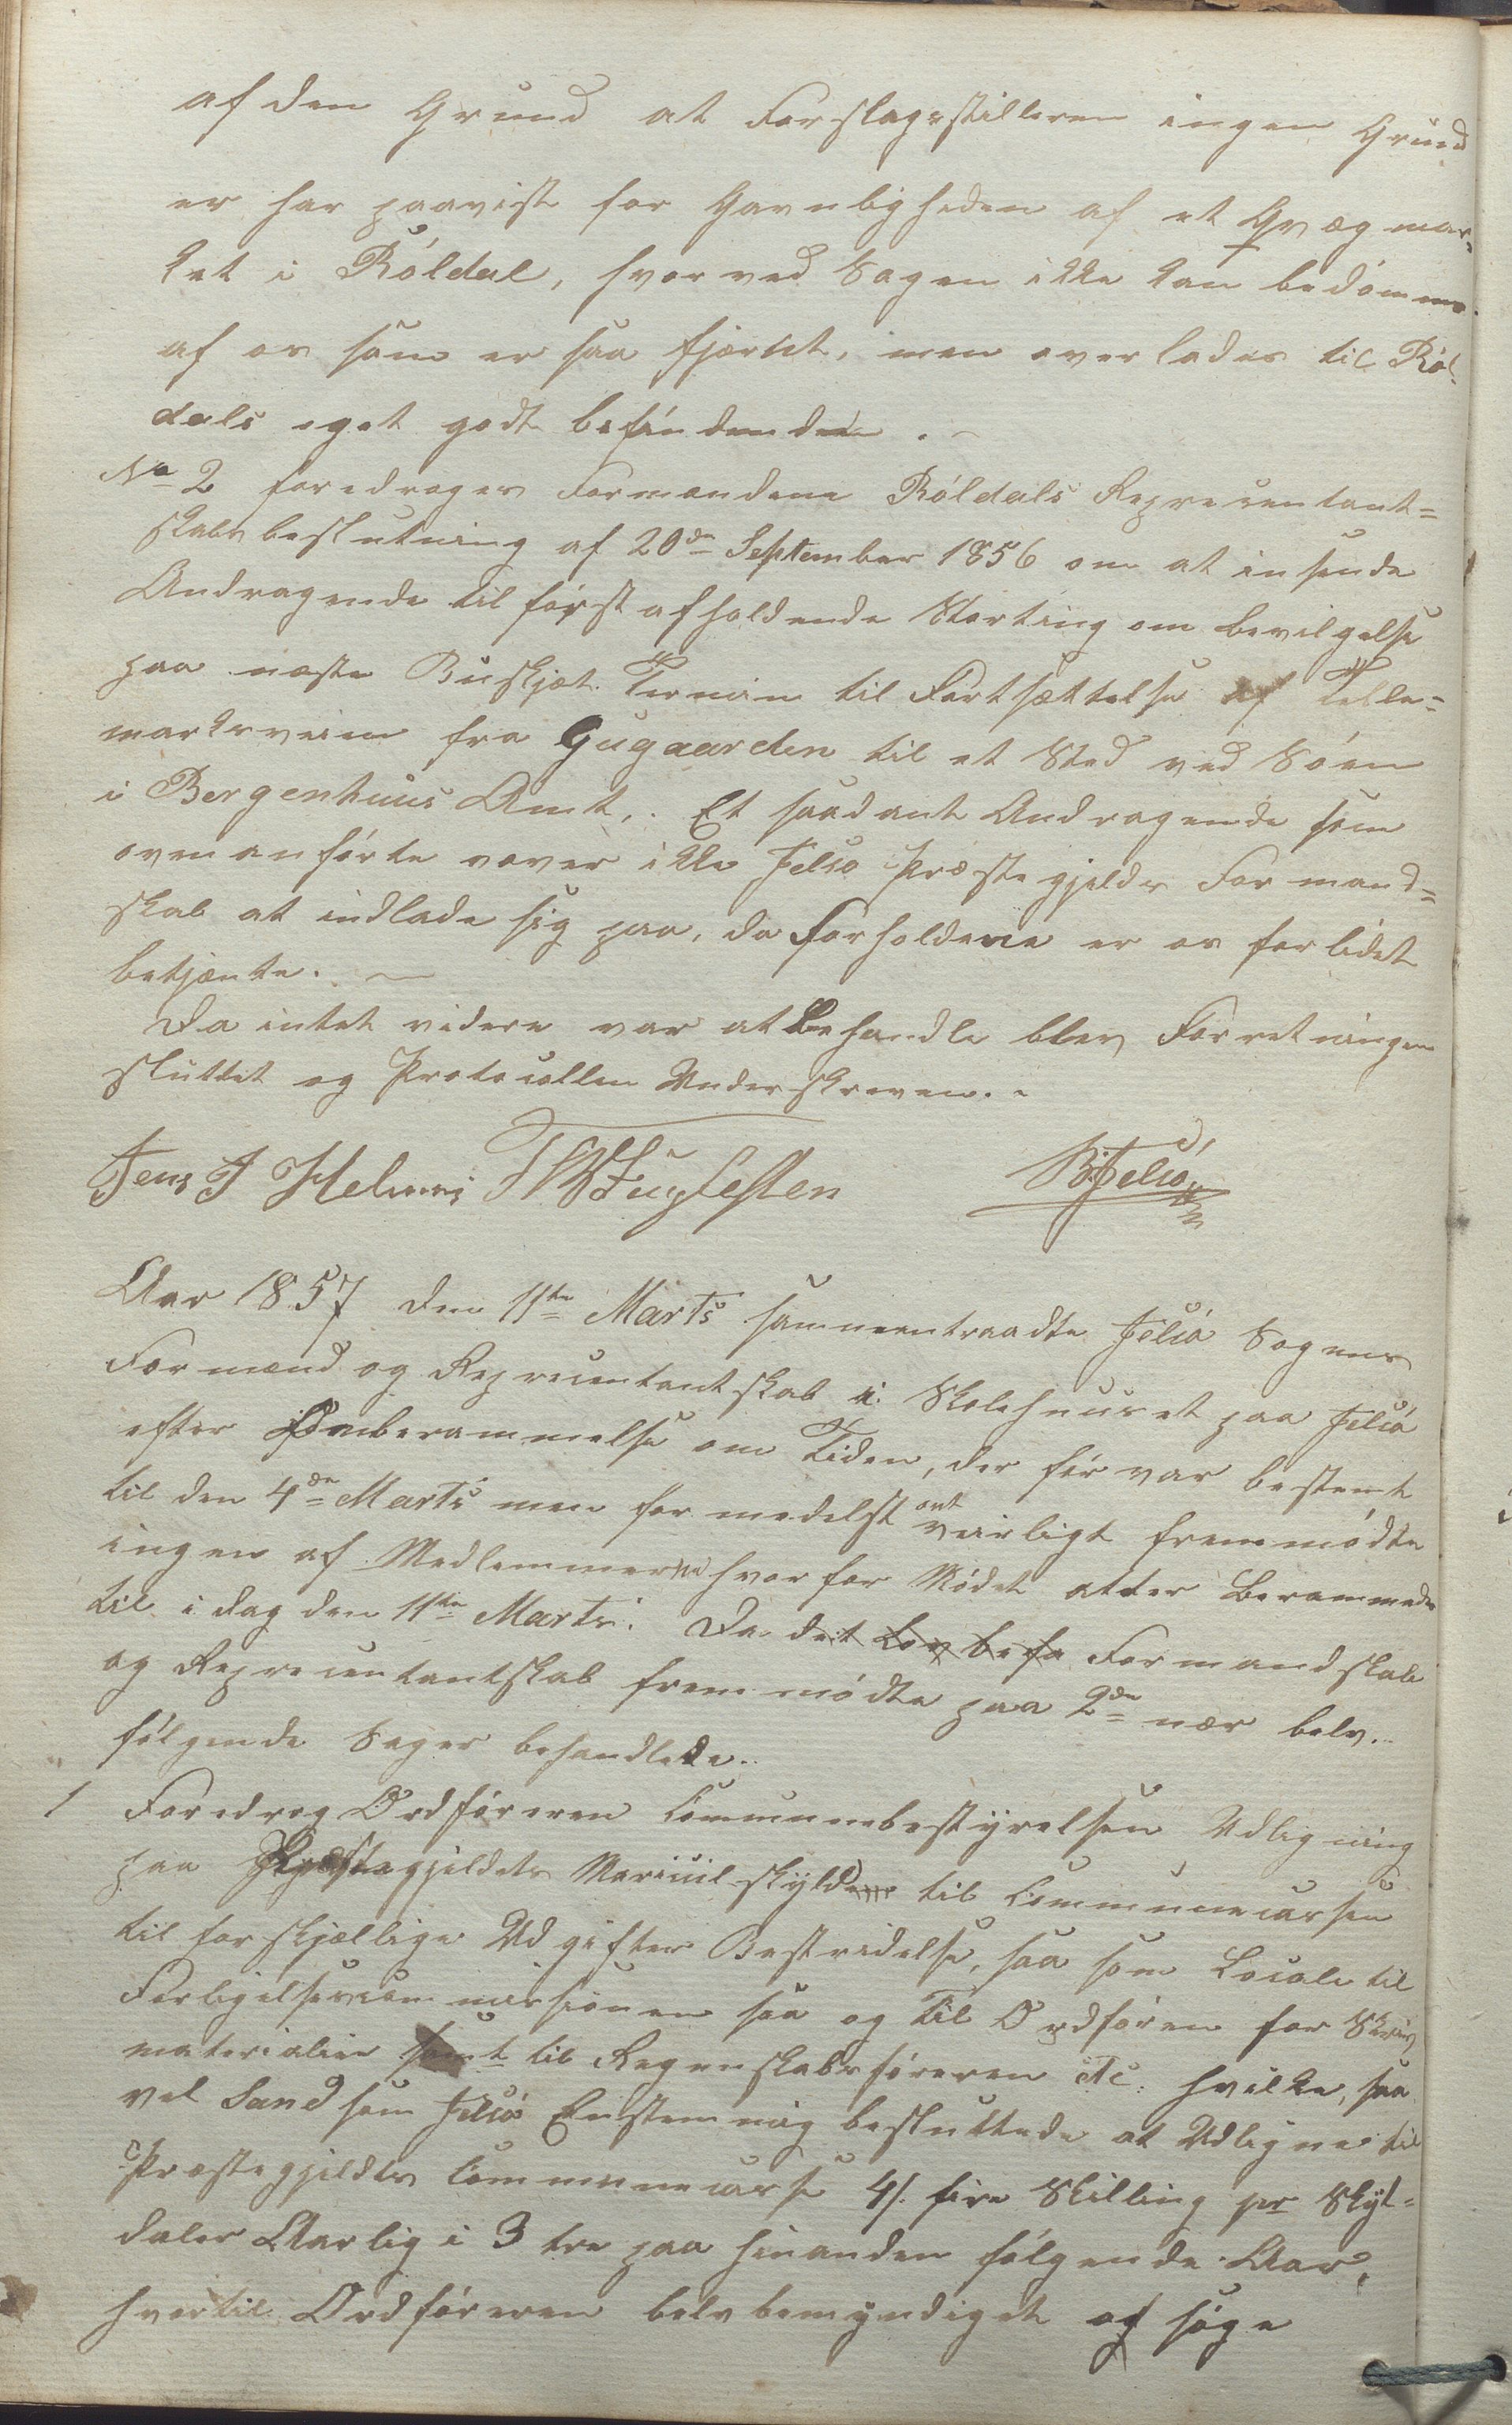 af den Grund at Forslagsstilleren ingen Grund
er har paavist for Gavnligheden af et Qvægmar-
ket i Róldal, hvorved Sagen ikke kan bedómmes
af os som er saa fjærnt, men overlades til Ról-
dals eget godt befindende.
No 2 foredroges Formændene Róldals Representant=
skabsbeslutning af 20de September 1856 om at insende
Andragende til fórst afholdende Storting om bevilgelse
paa næste Buskjæt Termin til Fortsættelse af Telle=
marksveien fra Gugaarden til et Sted ved Sóen
i Bergenhuus Amt. Et saadant Andragende som
ovenanfórte vover ikke Jelsó Præstegjelds Formand=
skab at indlade sig paa, da Forholdene er os for lidet
bekjente.
Da intet videre var at Behandle blev Forretningen
sluttet og Protocollen Underskreven.
Jens J Helmi
B Jelsó
Aar 1857 den 11te Marts sammentraadte Jelsó Sogens
Formænd og Representantskab i Skolehuuset paa Jelsó
efter Omberammelse om Tiden, der fór var bestemt
til den 4de Marts men formedelst ont veirligt fremmódte
ingen af Medlemmerne hvorfor Módet atter Berammedes
til i dag den 11te Marts. Da det Lov befa Formandskab
og Representantskab fremmódte paa 2de nær blev
fólgende Sager behandlede.
1 Foredrog Ordfóreren Communebestyrelsen Udligning
paa Præstegjeldets Matriculskyld til Communecassen
til forskjællige Udgifters Bestridelse, saa som Locale til
Forligelsescommissionen saa og til Ordfóren for Skriv
materialier samt til Regnskabsfóreren etc. hvilke, saa
vel Sand som Jelsó Enstemmig besluttede at Udligne til
Præstegjeldets Communecasse 4/. fire Skilling pr Skyl=
daler Aarlig i 3 tre paa hinanden fólgende Aar,
hvortil Ordfóreren blev bemyndiget at sóge